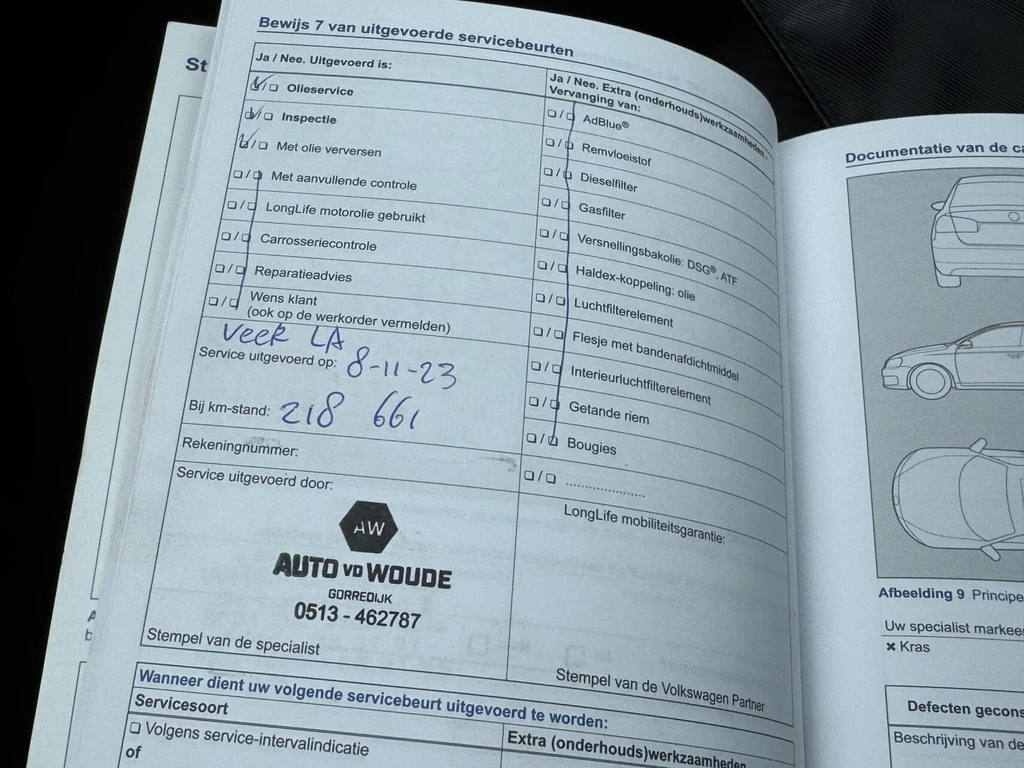 St
Bewijs 7 van uitgevoerde servicebeurten
Ja / Nee. Uitgevoerd is:
Olieservice
Inspectie
Met olie verversen
Met aanvullende controle
LongLife motorolie gebruikt
Carrosseriecontrole
Reparatieadvies
Wens klant
(ook op de werkorder vermelden)
Veek LA
Service uitgevoerd op: 8-11-23
Bij km-stand: 218 661
Rekeningnummer:
Service uitgevoerd door:
AW
AUTO VD WOUDE
GORREDIJK
0513 - 462787
Stempel van de specialist
Ja / Nee. Extra (onderhouds)werkzaamheden -
Vervanging van:
AdBlue®
Remvloeistof
Dieselfilter
Gasfilter
Versnellingsbakolie: DSG®, ATF
Haldex-koppeling: olie
Luchtfilterelement
Flesje met bandenafdichtmiddel
Interieurluchtfilterelement
Getande riem
Bougies
....................
LongLife mobiliteitsgarantie:
Stempel van de Volkswagen Partner
Wanneer dient uw volgende servicebeurt uitgevoerd te worden:
Servicesoort
Volgens service-intervalindicatie
of
Extra (onderhouds)werkzaamheden
Documentatie van de ca
Afbeelding 9 Principe
Uw specialist markeer
× Kras
Defecten gecons
Beschrijving van de